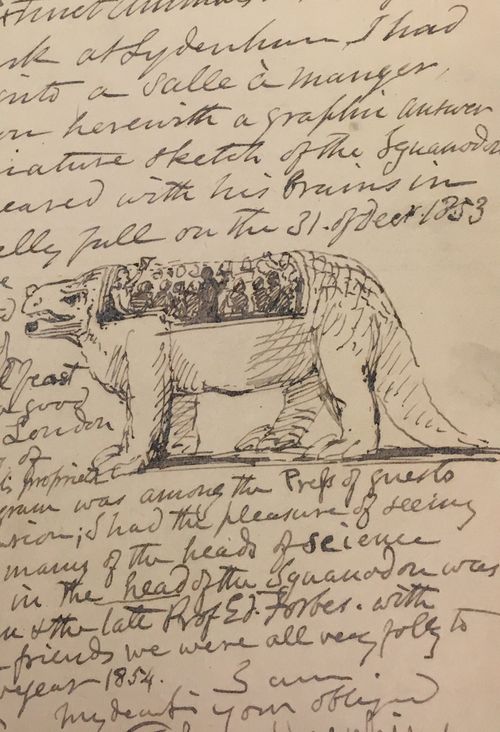 xtinct Animals
rk at Sydenham, I had
into a Salle à manger,
on herewith a graphic answer
niature sketch of the Iguanodon
eared with his Brains in
elly full on the 31. of Decr. 1853
e
feast
a good
London
of
is propriet
gram was among the Press of guests
asion; I had the pleasure of seeing
many of the heads of science
in the head of the Iguanodon was
n & the late Prof Ed. Forbes. with
friends we were all very jolly to
w year 1854.
I am
My dear Sir your obliged